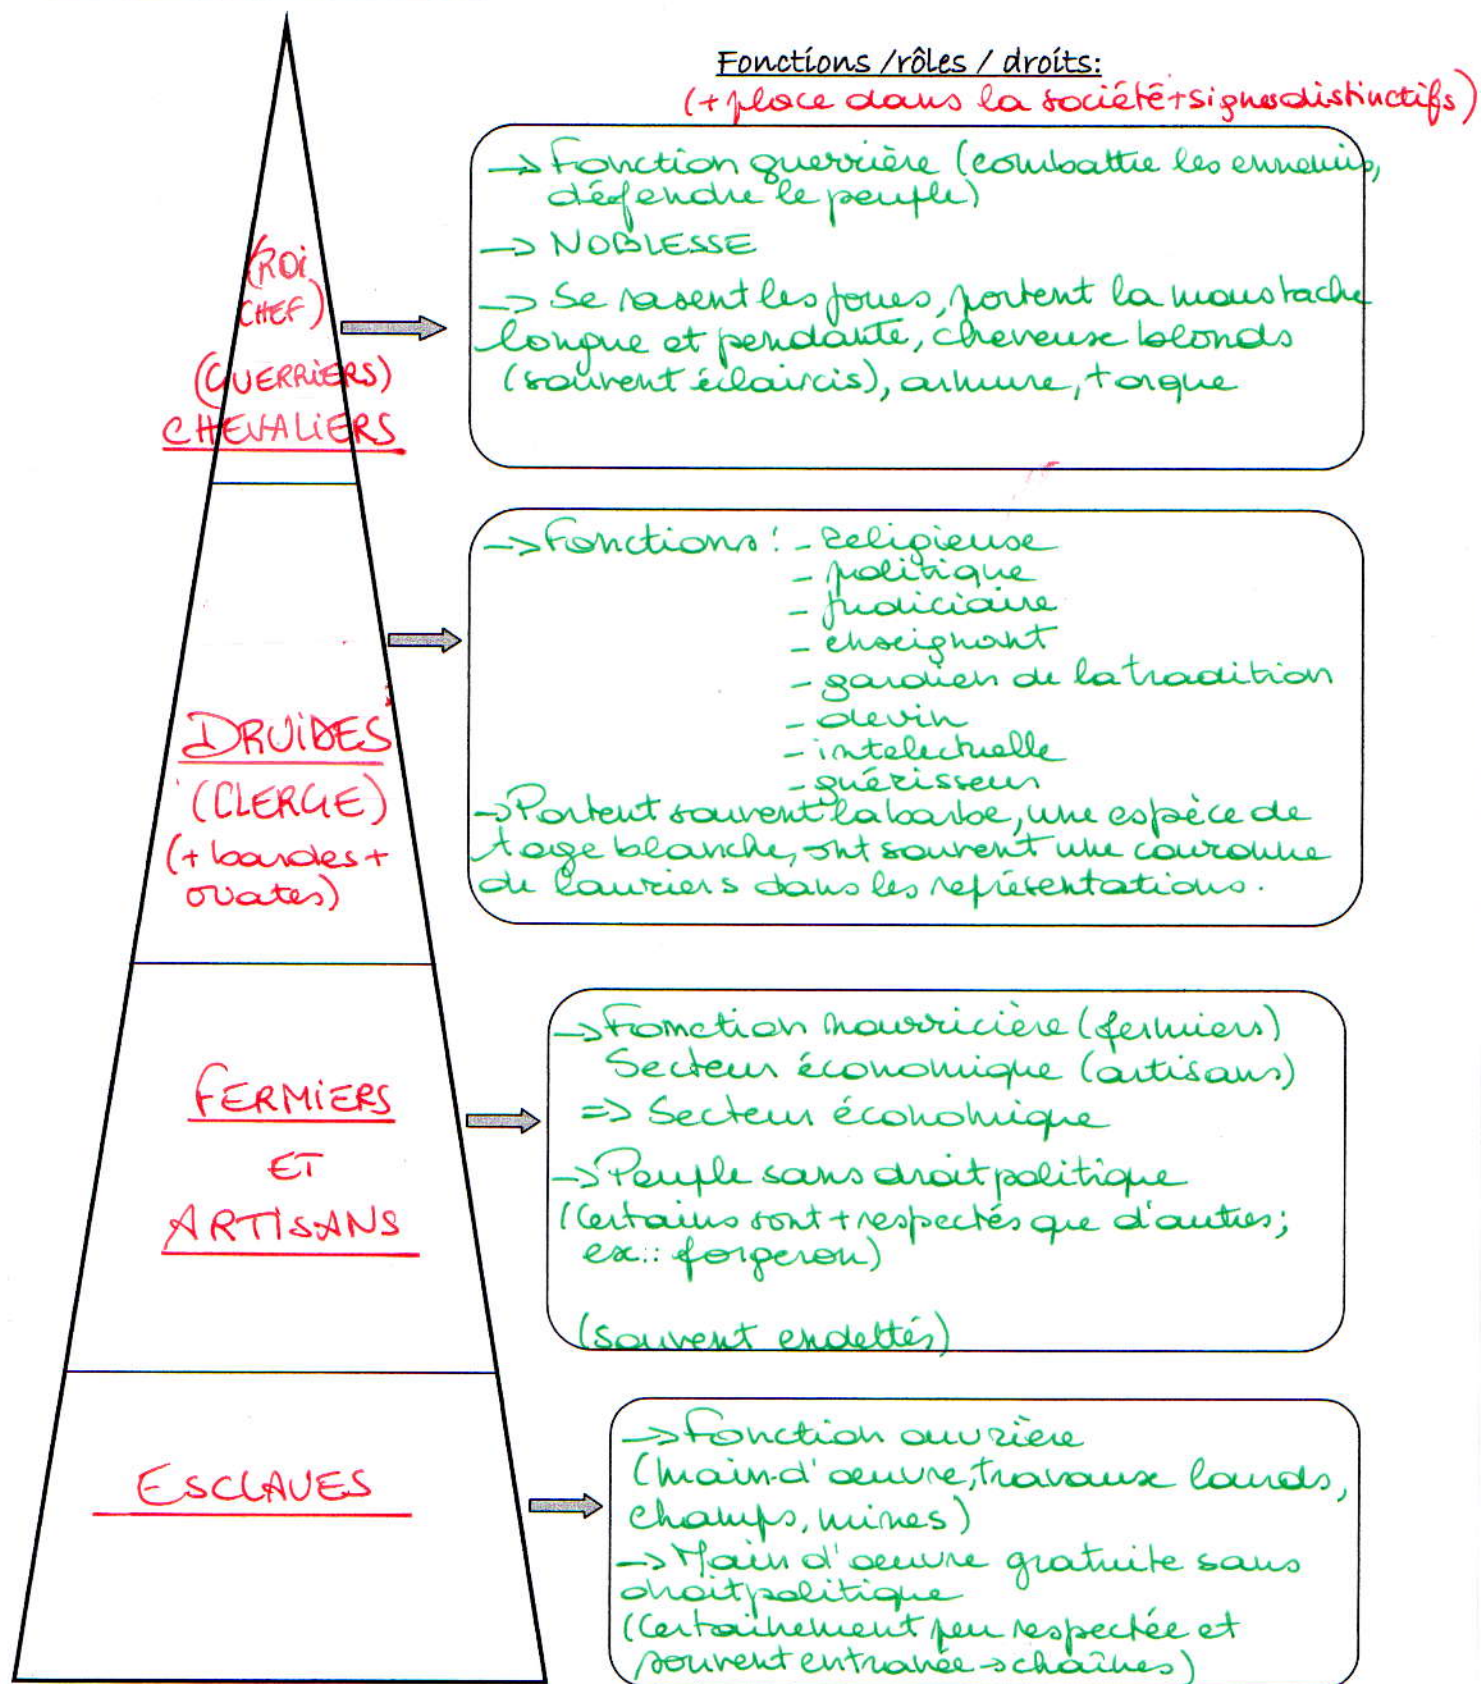 Fonctions /rôles / droits:
(+ place dans la société + signes distinctifs)
(ROI
CHEF)
(GUERRIERS)
CHEVALIERS
→ Fonction guerrière (combattre les ennemis,
défendre le peuple)
→ NOBLESSE
→ Se rasent les joues, portent la moustache
longue et pendante, cheveux blonds
(souvent éclaircis), armure, torque
DRUIDES
(CLERGE)
(+ bardes +
ovates)
→ Fonctions : - religieuse
- politique
- judiciaire
- enseignant
- gardien de la tradition
- devin
- intelectuelle
- guérisseur
→ Portent souvent la barbe, une espèce de
toge blanche, ont souvent une couronne
de lauriers dans les représentations.
FERMIERS
ET
ARTISANS
→ Fonction nourricière (fermiers)
Secteur économique (artisans)
=> Secteur économique
→ Peuple sans droit politique
(Certains sont + respectés que d'autres;
ex.: forgeron)
(souvent endettés)
ESCLAVES
→ Fonction ouvrière
(main-d'œuvre, travaux lourds,
champs, mines)
→ Main d'œuvre gratuite sans
droit politique
(Certainement peu respectée et
souvent entravée → chaînes)